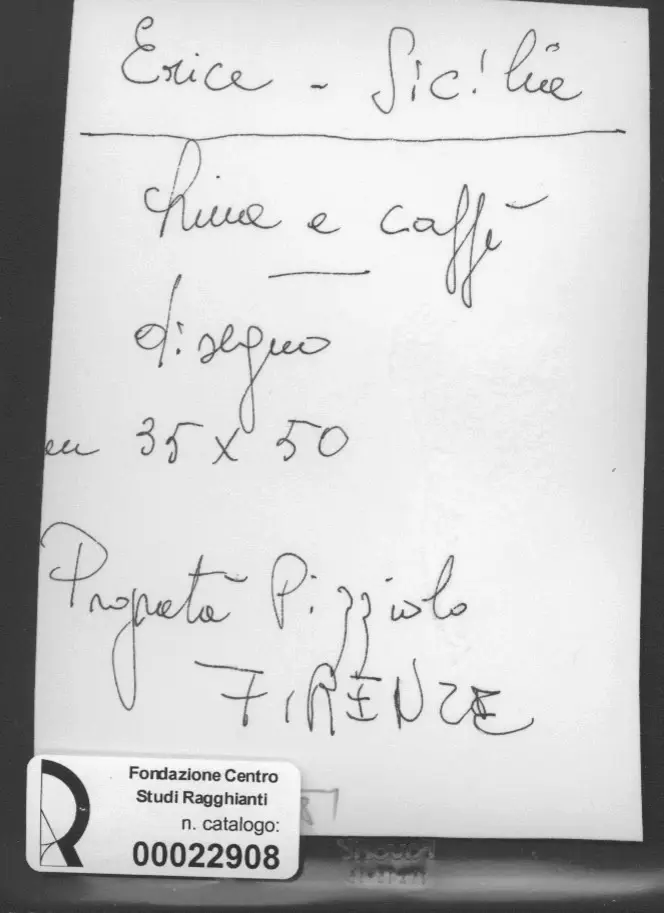 Erice - Sicilia
china e caffè
disegno
cm 35 x 50
Propretà Pizziolo
FIRENZE
Fondazione Centro
Studi Ragghianti
n. catalogo:
00022908